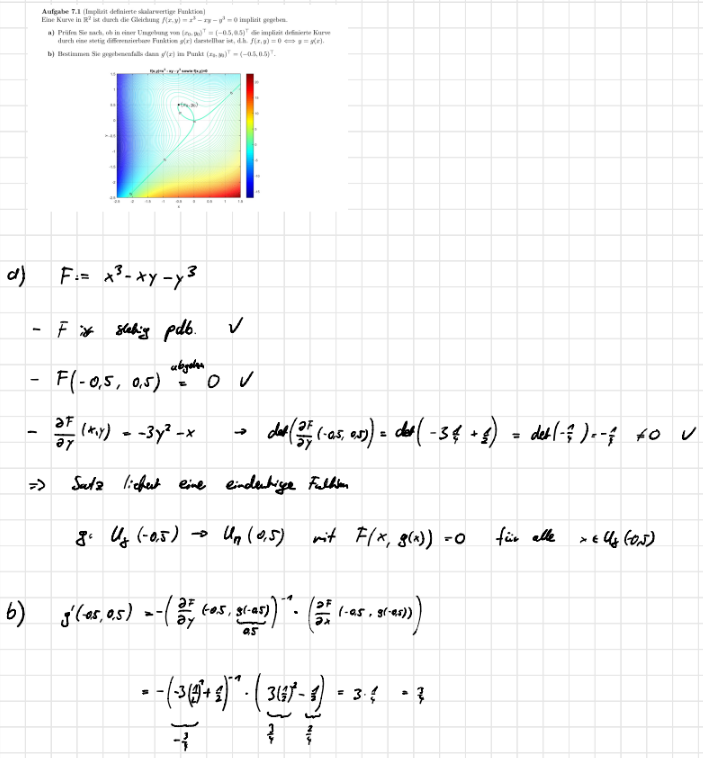 Aufgabe 7.1 (Implizit definierte skalarwertige Funktion)
Eine Kurve in ℝ² ist durch die Gleichung f(x, y) = x³ − xy − y³ = 0 implizit gegeben.
a) Prüfen Sie nach, ob in einer Umgebung von (x₀, y₀)ᵀ = (−0.5, 0.5)ᵀ die implizit definierte Kurve
durch eine stetig differenzierbare Funktion g(x) darstellbar ist, d.h. f(x, y) = 0 ⟺ y = g(x).
b) Bestimmen Sie gegebenenfalls dann g'(x) im Punkt (x₀, y₀)ᵀ = (−0.5, 0.5)ᵀ.
(x₀, y₀)
a) F := x³ - xy - y³
- F ist stetig pdb. ✓
- F(-0,5, 0,5) abgelesen = 0 ✓
- ∂F/∂y (x,y) = -3y² - x → det(∂F/∂y (-0.5, 0.5)) = det(-3 1/4 + 1/2) = det(-1/4) = -1/4 ≠ 0 ✓
=> Satz liefert eine eindeutige Funktion
g: U_δ(-0,5) → U_η(0,5) mit F(x, g(x)) = 0 für alle x ∈ U_δ(-0,5)
b) g'(-0.5, 0.5) = -(∂F/∂y (-0.5, g(-0.5)))⁻¹ · (∂F/∂x (-0.5, g(-0.5)))
0.5
= -(-3(1/2)² + 1/2)⁻¹ · (3(1/2)² - 1/2) = 3 ·
3/4 2/4